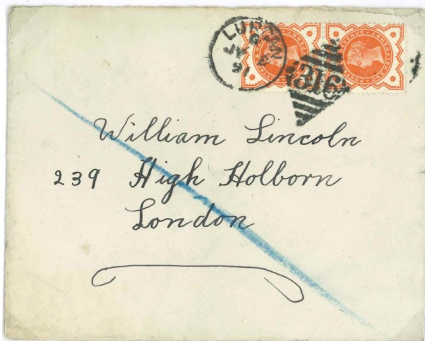 LUPTON
316
William Lincoln
239 High Holborn
London